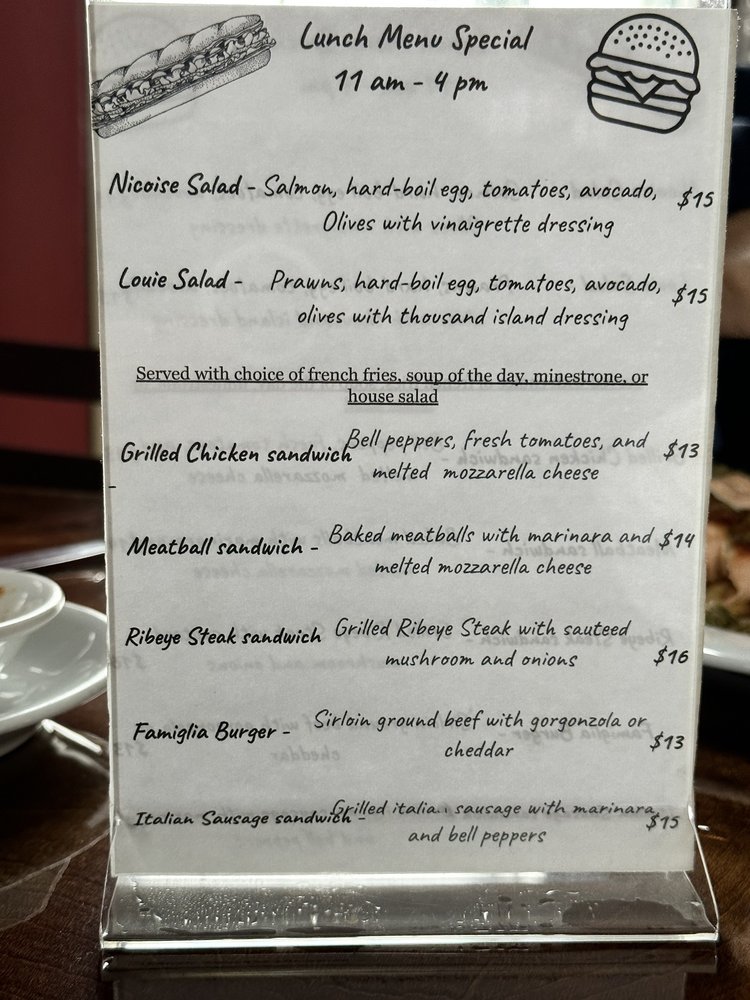 Lunch Menu Special
11 am - 4 pm
Nicoise Salad - Salmon, hard-boil egg, tomatoes, avocado, $15
Olives with vinaigrette dressing
Louie Salad - Prawns, hard-boil egg, tomatoes, avocado, $15
olives with thousand island dressing
Served with choice of french fries, soup of the day, minestrone, or
house salad
Grilled Chicken sandwich Bell peppers, fresh tomatoes, and $13
- melted mozzarella cheese
Meatball sandwich - Baked meatballs with marinara and $14
melted mozzarella cheese
Ribeye Steak sandwich Grilled Ribeye Steak with sauteed
mushroom and onions $16
Famiglia Burger - Sirloin ground beef with gorgonzola or $13
cheddar
Italian Sausage sandwich - Grilled italian sausage with marinara, $15
and bell peppers